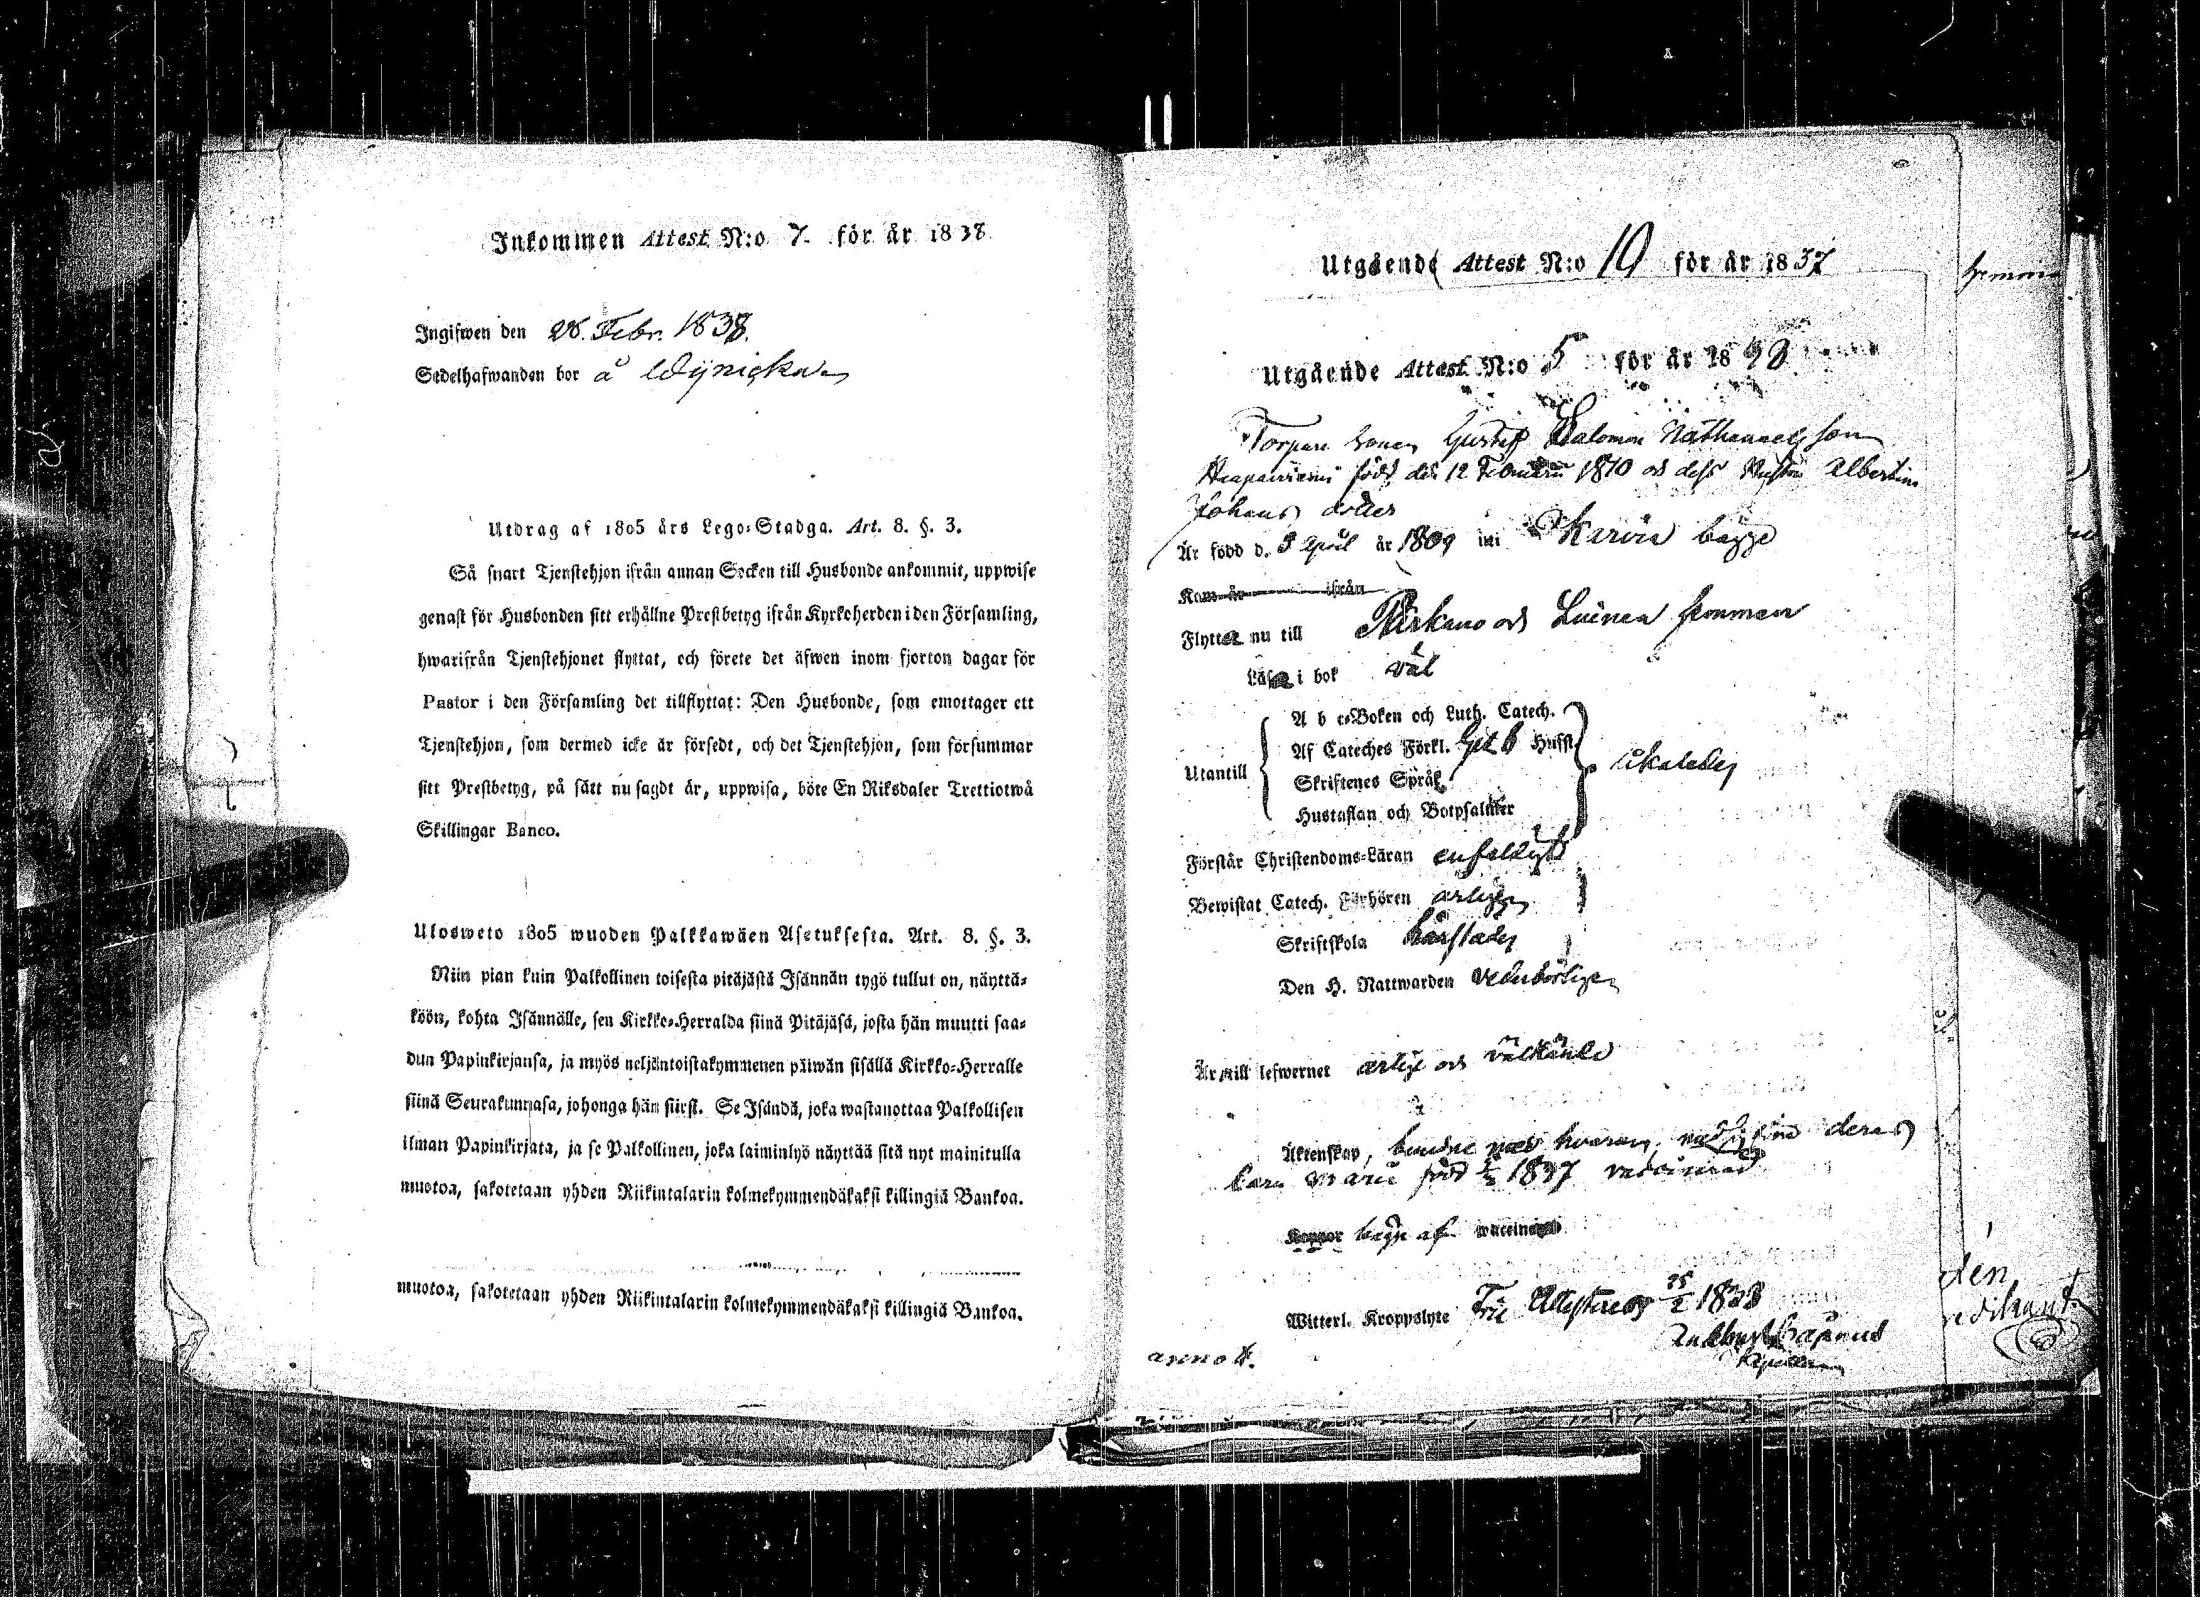 Inkommen Attest N:o 7. för år 1838
Ingifwen den 28. Febr. 1838.
Sedelhafwanden bor å
Utdrag af 1805 års Lego-Stadga. Art. 8. §. 3.
Så snart Tjenstehjon ifrån annan Socken till Husbonde ankommit, uppwise
genast för Husbonden sitt erhållne Prestbetyg ifrån Kyrkoherden i den Församling,
hwarifrån Tjenstehjonet flyttat, och förete det äfwen inom fjorton dagar för
Pastor i den Församling det tillflyttat: Den Husbonde, som emottager ett
Tjenstehjon, som dermed icke är försedt, och det Tjenstehjon, som försummar
sitt Prestbetyg, på sätt nu sagdt är, uppwisa, böte En Riksdaler Trettiotwå
Skillingar Banco.
Ulosweto 1805 wuoden Palkkawäen Asetuksesta. Art. 8. §. 3.
Niin pian kuin Palkollinen toisesta pitäjästä Isännän tygö tullut on, näyttä-
köön, kohta Isännälle, sen Kirkko-Herralda siinä Pitäjäsä, josta hän muutti saa-
dun Papinkirjansa, ja myös neljäntoistakymmenen päiwän sisällä Kirkko-Herralle
siinä Seurakunnasa, johonga hän siirsi. Se Isändä, joka wastanottaa Palkollisen
ilman Papinkirjata, ja se Palkollinen, joka laiminlyö näyttää sitä nyt mainitulla
muotoa, sakotetaan yhden Riikintalarin kolmekymmendäkaksi killingiä Bankoa.
muotoa, sakotetaan yhden Riikintalarin kolmekymmendäkaksi killingiä Bankoa.
Utgående Attest N:o 10 för år 1837
Utgående Attest N:o 5 för år 18
Torpare Gustaf Salomon Nathanaelsson
född den 12 Februarii 1810 och dess Hustru Albertina
Johans dotter
Är född d. 5 April år 1809 i Karvia bägge
Kom år ifrån
Flytta nu till Parkano och
Läsa i bok väl
Utantill
A b c-Boken och Luth. Catech.
Af Cateches Förkl. Hufst.
Skriftenes Språk
Hustaflan och Botpsalmer
Förstår Christendoms-Läran enfaldigt
Bewistat Catech. Förhören årligen
Skriftskola
Den H. Nattwarden vederbörligen
Är till lefwernet ärlige och välkände
Äktenskap, deras
barn Maria född 1837 vaccinerad
Koppor bägge af vaccinen
Witterl. Kroppslyte Fri 25/2 1838